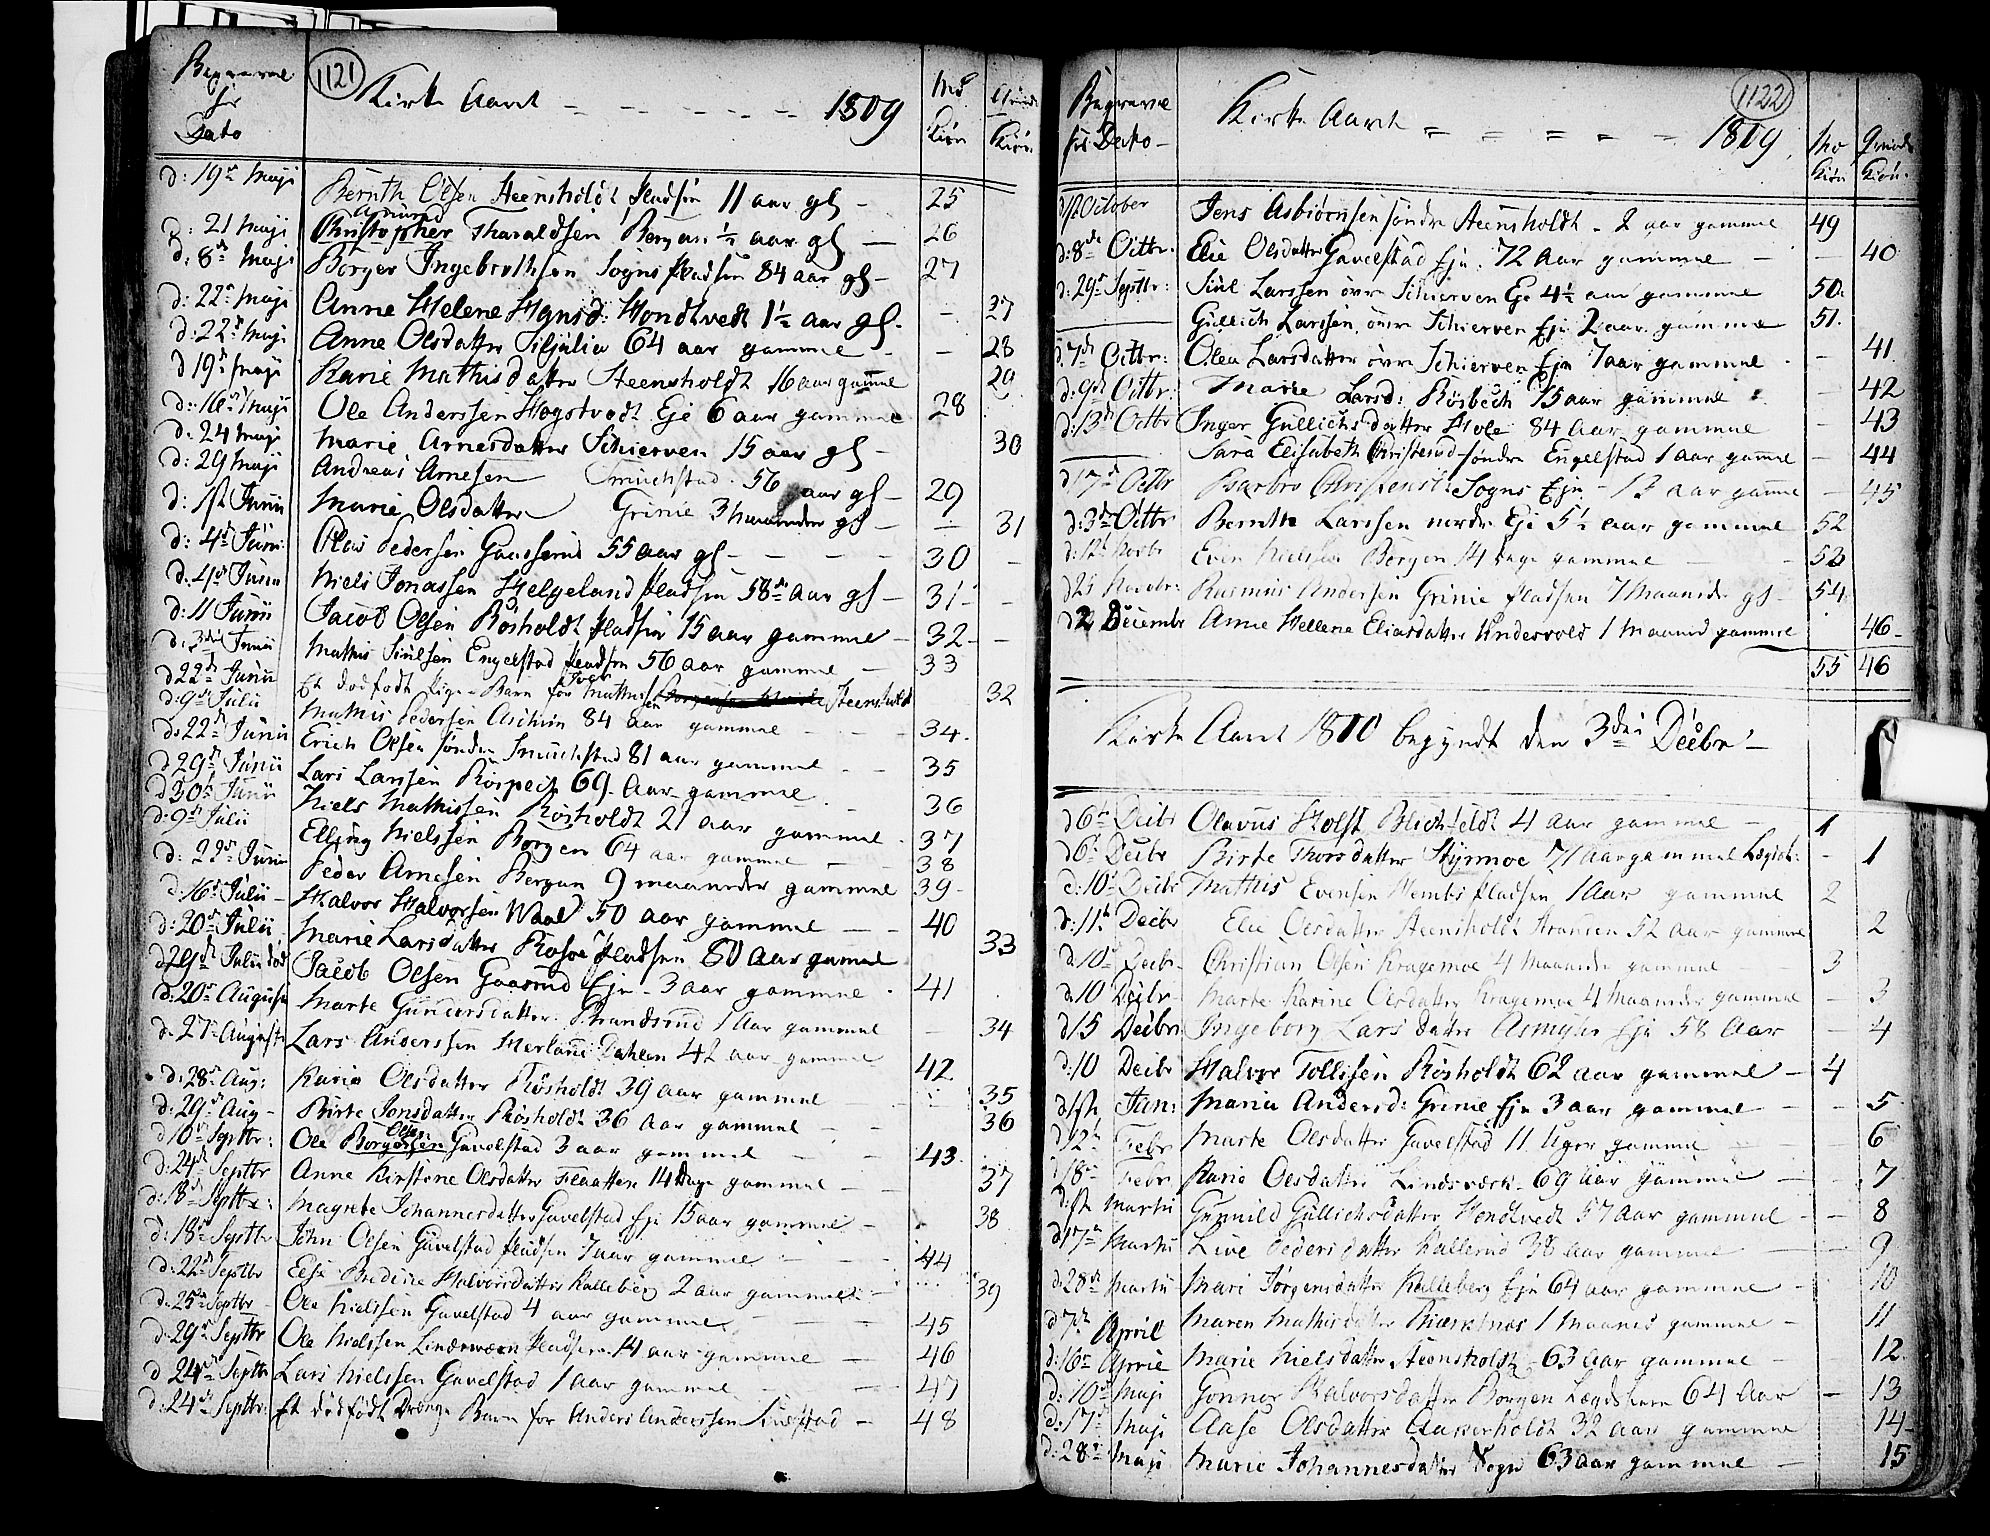 Begravne
for
Dato
1121
Kirke Aaret - - - - - - 1809
Kiøn
Kiøn
d: 19de Maji Bernth Olsen Steensholdt Pladsen 11 aar gl - 25
d: 21 Maji Christopher Tharaldsen Bergan ½ aar gl - 26
d: 8de Maji Børger Ingebrethsen Sogns Pladsen 84 aar gl - 27
d: 22de Maji Anne Helene Hansd: Hondtvedt 1½ aar gl - 27
d: 22de Maji Anne Olsdatter Siljulia 64 aar gammel - 28
d 19de Maji Karie Mathisdatter Steensholdt 16 aar gammel 29
d: 16de Maji Ole Anderssen Hogstvedt Eje 6 aar gammel 28
d: 24 Maji Marie Arnesdatter Schierven 15 aar gl - 30
d: 29 Maji Andreas Arnesen Smuchstad 56 aar gl - 29
d: 1st Junii Marie Olsdatter Grinie 3 maaneder gl - 31
d: 4de Junii Pedersen Gaaserud 55 aar gl - - - 30
d. 4de Junii Niels Jonassen Helgeland Pladsen 58de aar gl - 31 -
d: 11 Junii Jacob Olsen Rösholdt Pladsen 15 aar gammel - 32 -
d: 3die Junii Mathis Siulsen Engelstad Pladsen 56 aar gammel - 33
d 22de Junii Et dödfödt Pige-Barn for Iver Mathissen Steensholdt 32
d: 9de Julii Mathis Pedersen Aschim 84 aar gammel - - - 34.
d: 22de Junii Erich Olsen søndre Smuchstad 81 aar gammel - - 35
d 29de Junii Lars Larssen Röspech 69 Aar gammel 36
d 30te Junii Niels Mathissen Rösholdt 21 aar gammel - 37
d: 9de Julii Elling Nielssen Borgen 64 aar gammel - 38
d: 23de Junii Peder Arnesen Bergan 9 maaneder gammel 39 -
d: 16de Julii - Halvor Halvorsen Waal 50 aar gammel - - 40
d: 20de Julii Marie Larsdatter Pladsen 60 aar gamel 33
d 29de Julii död Jacob Olsen Gaaserud Eje - 3 aar gammel . 41
d: 20de Augusti Marte Gundersdatter Strandsrud 1 Aar gammel - 34
d: 27de Augusti Lars Anderssen Dahlen 42 aar gammel 42
d: 28de Aug: Karie Olsdatter Rösholdt 39 aar gammel - 35
d: 29de Aug - Birte Jonsdatter Rösholdt 36 Aar gammel - 36
d 10de Septbr: Ole Olsen Gavelstad 3 aar gammel - - 43
d: 24de Septbr Anne Kirstine Olsdatter Flaatten 14 Dage gammel - 37
d: 18de Septbr: Magrete Johannesdatter Gavelstad Eje 15 aar gammel - 38
d: 18de Septbr John Olsen Gavelstad Pladsen 7 aar gammel - 44
d: 22de Septbr Else Halvorsdatter Kalleberg 2 aar gammel - 39
d: 25de Septbr - Ole Nielssen Gavelstad 4 aar gammel - - - 45
d: 29de Septbr Ole Nielssen Pladsen 14 aar gammel - 46
d 24de Septbr Lars Nielssen Gavelstad 1 aar gammel - 47
d: 24de Septbr: Et dödfödt Drænge Barn for Anders Anderssen - 48
1122
Begravne
for Dato -
Kirke Aaret - - - - - 1809.
Kiøn
Kiøn.
October Jens Asbiørnsen søndre Steensholdt - 2 aar gammel 49
d: 8de Octbr. Elie Olsdatter Gavelstad Eje. 72 Aar gammel - - 40
d: 29de Septbr: Siul Larssen övre Schierven Eje 4½ aar gammel 50.
Gullich Larssen övre Schierven Eje 2 aar gammel 51.
d. 7de Octbr: Olea Larsdatter övre Schierven Eje 7 aar gammel - 41
d: 9de Octbr: Marie Larsd: Rösbech 15 aar gammel - 42
d: 13de Octbr Inger Gullichsdatter Hole 84 Aar gammel - 43
Sara Elisabeth søndre Engelstad 1 aar gammel - 44
d 17de Octbr Barbro Sogns Eje - aar gamel - 45
d: 3de Octbr Bernthe Larssen nordre Eje 5½ aar gammel 52
d: 12te Novbr Even Nielssen Borgen 14 Dage gammel - 53
d 25 Novbr: Rasmus Andersen Grinie Pladsen 7 Maaneder gl - 54
d 2 Decembr Anne Hellene Eliasdatter Undersvold 1 Maaned gammel 46 -
55 46
Kirke Aaret 1810 begyndt den 3die Decbr -
d 6te Decbr Olavus Holst Blichfeldt 4 aar gammel - 1
d 6te Decbr Birte Thorsdatter Styrmoe 71 Aar gammel - 1
d: 10de Decbr Mathis Evensen Pladsen 1 Aar gammel 2
d: 11te Decbr Elie Olsdatter Steensholdt Stranden 52 aar gammel 2
d. 10de Decbr - Christian Olsen Kragemoe 4 Maaneder gammel - - 3
d. 10 Decbr - Marte Karine Olsdatter Kragemoe 4 Maaneder gammel - 3
d 15 Decbr Ingeborg Larsdatter Eje 58 Aar - 4
d. 10 Decbr Halvor Tollefsen Rösholdt 62 aar gammel - 4
d 1ste Jan: Maria Andersd: Grinie Eje 3 aar gammel - - 5
d 12te Febr Marte Olsdatter Gavelstad 11 Uger gammel 6
d 18de Febr. Karie Olsdatter - 69 aar gammel - - 7
d: 1st Martii Gunnild Gullichsdatter Hondtvedt 57 Aar gammel - - 8
d 17de Martii Live Pedersdatter Kallerud 38 aar gammel - - 9
d: 28de Martii Mari Jörgensdatter Kalleberg Eje 64 aar gammel - 10
d 7de April Maren Mathisdatter Biærknæs 1 Maaned gammel - 11
d: 16de Aprie Marie Nielsdatter Steensholdt - 63 aar gammel - 12.
d: 10de Maji Gonnor Halvorsdatter Borgen 64 Aar - 13
d: 17de Maji Aase Olsdatter 32 aar gammel 14 -
d: 28de Maji Marie Johannesdatter Sogn 63 aar gammel - 15